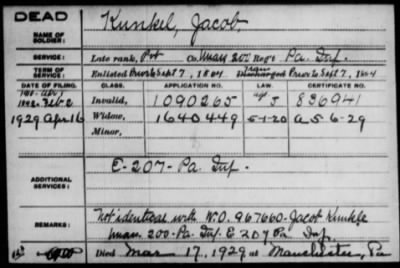 DEAD
NAME OF SOLDIER: Kunkel, Jacob.
SERVICE: Late rank, Pvt Co. Unass 200 Reg't Pa. Inf.
TERM OF SERVICE: Enlisted Prior to Sept 7, 1864 Discharged Prior to Sept 7, 1864
DATE OF FILING. CLASS. APPLICATION NO. LAW. CERTIFICATE NO.
1892 Feb 2 Invalid, 1090265 836941
1929 Apr 16 Widow, 1640449 5-1-20 A-5-6-29
Minor,
ADDITIONAL SERVICES: E-207- Pa. Inf.
REMARKS: Not identical with W.O. 967660-Jacob Kunkle
unass. 200-Pa. Inf. E 207 Pa Inf.
Died Mar 17, 1929 at Manchester, Pa